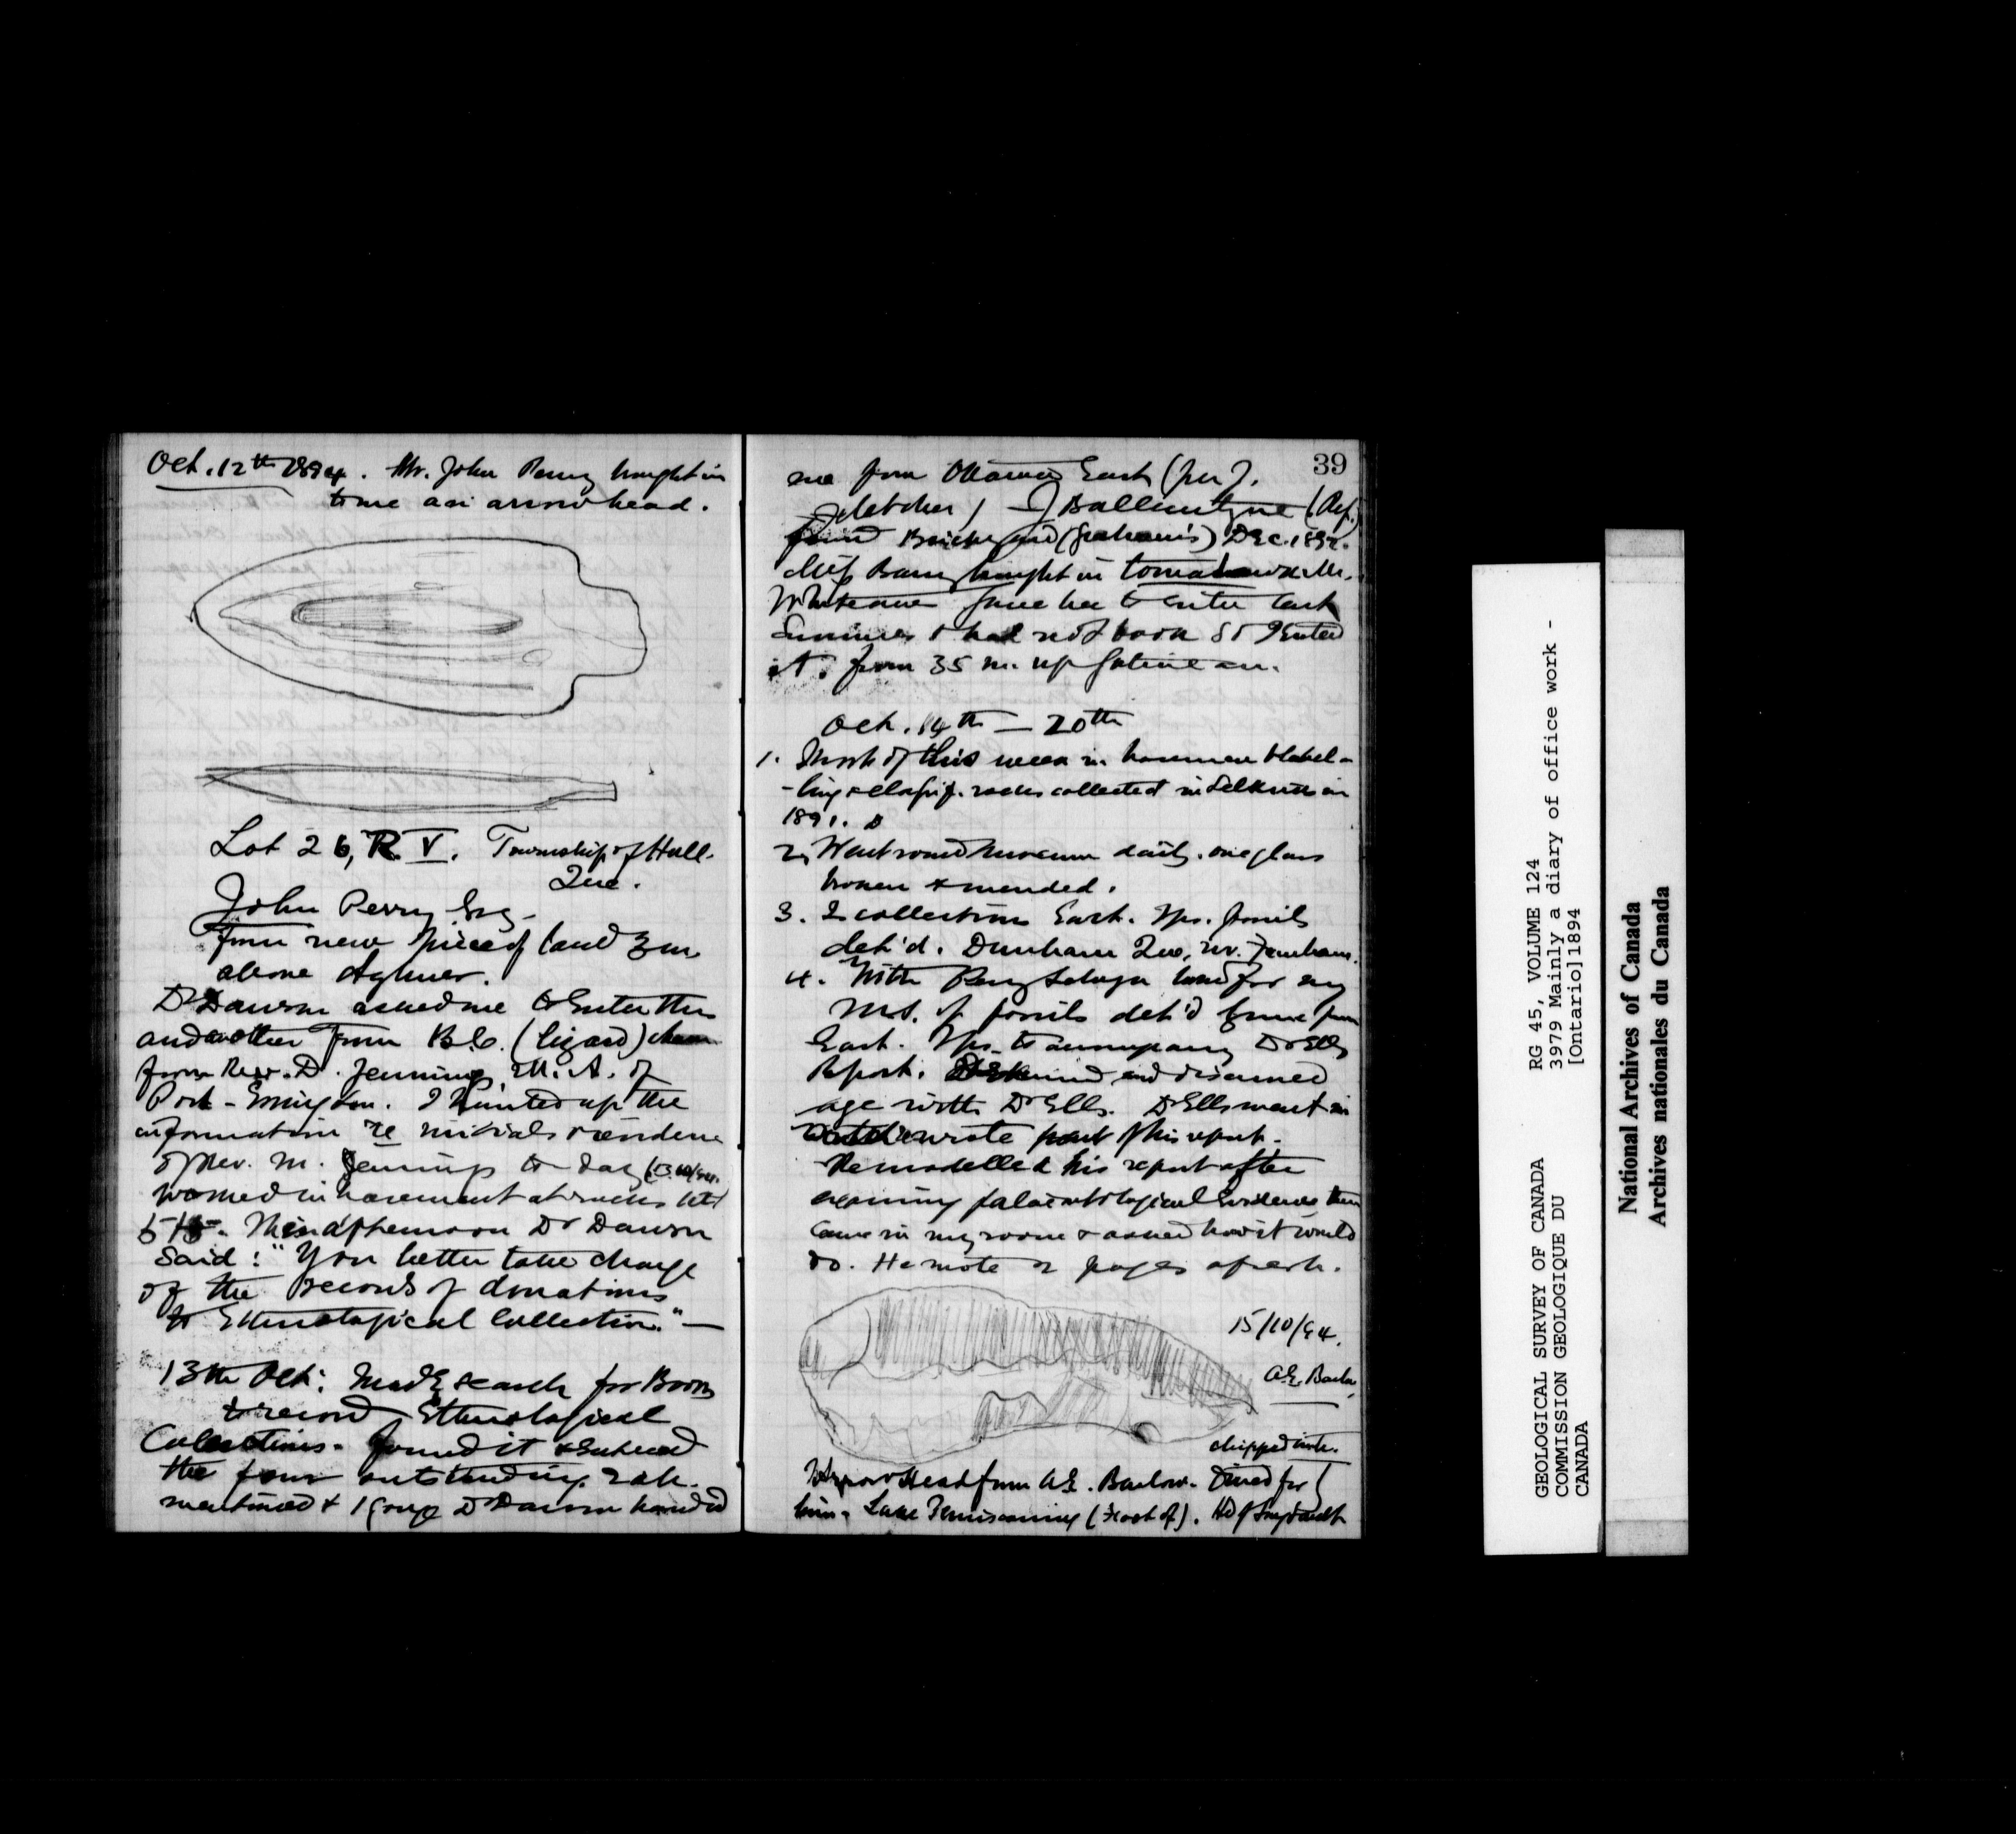 Oct. 12th 1894. Mr. John Perry brought in
to me an arrowhead.
Lot 26, R. V. Township of Hull.
Que.
John Perry Esq.
from new piece of land 3 m.
above Aylmer.
Dr Dawson asked me to enter this
and another from B.C. (lizard)
from Rev. D. Jennings, M.A. of
Port-Essington. I hunted up the
information re initials & residence
of Rev. Mr. Jennings to-day
worked in basement at rocks till
5 15. This afternoon Dr Dawson
said: "You better take charge
of the records of donations
to Ethnological Collection." —
13th Oct: Made search for Book
to record Ethnological
Collections. found it & entered
the four outstanding
mentioned & 1 gouge Dr Dawson handed
39
me from Ottawa East (per J.
Fletcher) J Ballantyne (Ref.)
found Brickyard (Graham's) Dec. 1892.
Miss Barry brought in tomahawk Mr.
Whiteaves gave her to enter last
Summer & had not book so I entered
it. from 35 m. up Gatineau.
Oct. 14th — 20th
1. Most of this week in basement label-
-ling & classif. rocks collected in Selkirks in
1891.
2. Went round Museum daily. one glass
broken & mended.
3. 2 collections East. Tps. fossils
det'd. Dunham Que, nr. Farnham.
4. With Percy Selwyn looked for my
MS. of fossils det'd by me from
East. Tps. to accompany Dr Ells
Report. and discussed
age with Dr Ells. Dr Ells went in
and wrote part of his report.
Remodelled his report after
examining palaeontological evidence then
came in my room & asked how it would
do. He wrote 2 pages afresh.
15/10/94.
A.E. Barlow
chipped
Arrow Head from A.E. Barlow. for
him. Lake Temiscaming (Foot of).
GEOLOGICAL SURVEY OF CANADA RG 45, VOLUME 124
COMMISSION GEOLOGIQUE DU 3979 Mainly a diary of office work -
CANADA [Ontario]1894
National Archives of Canada
Archives nationales du Canada